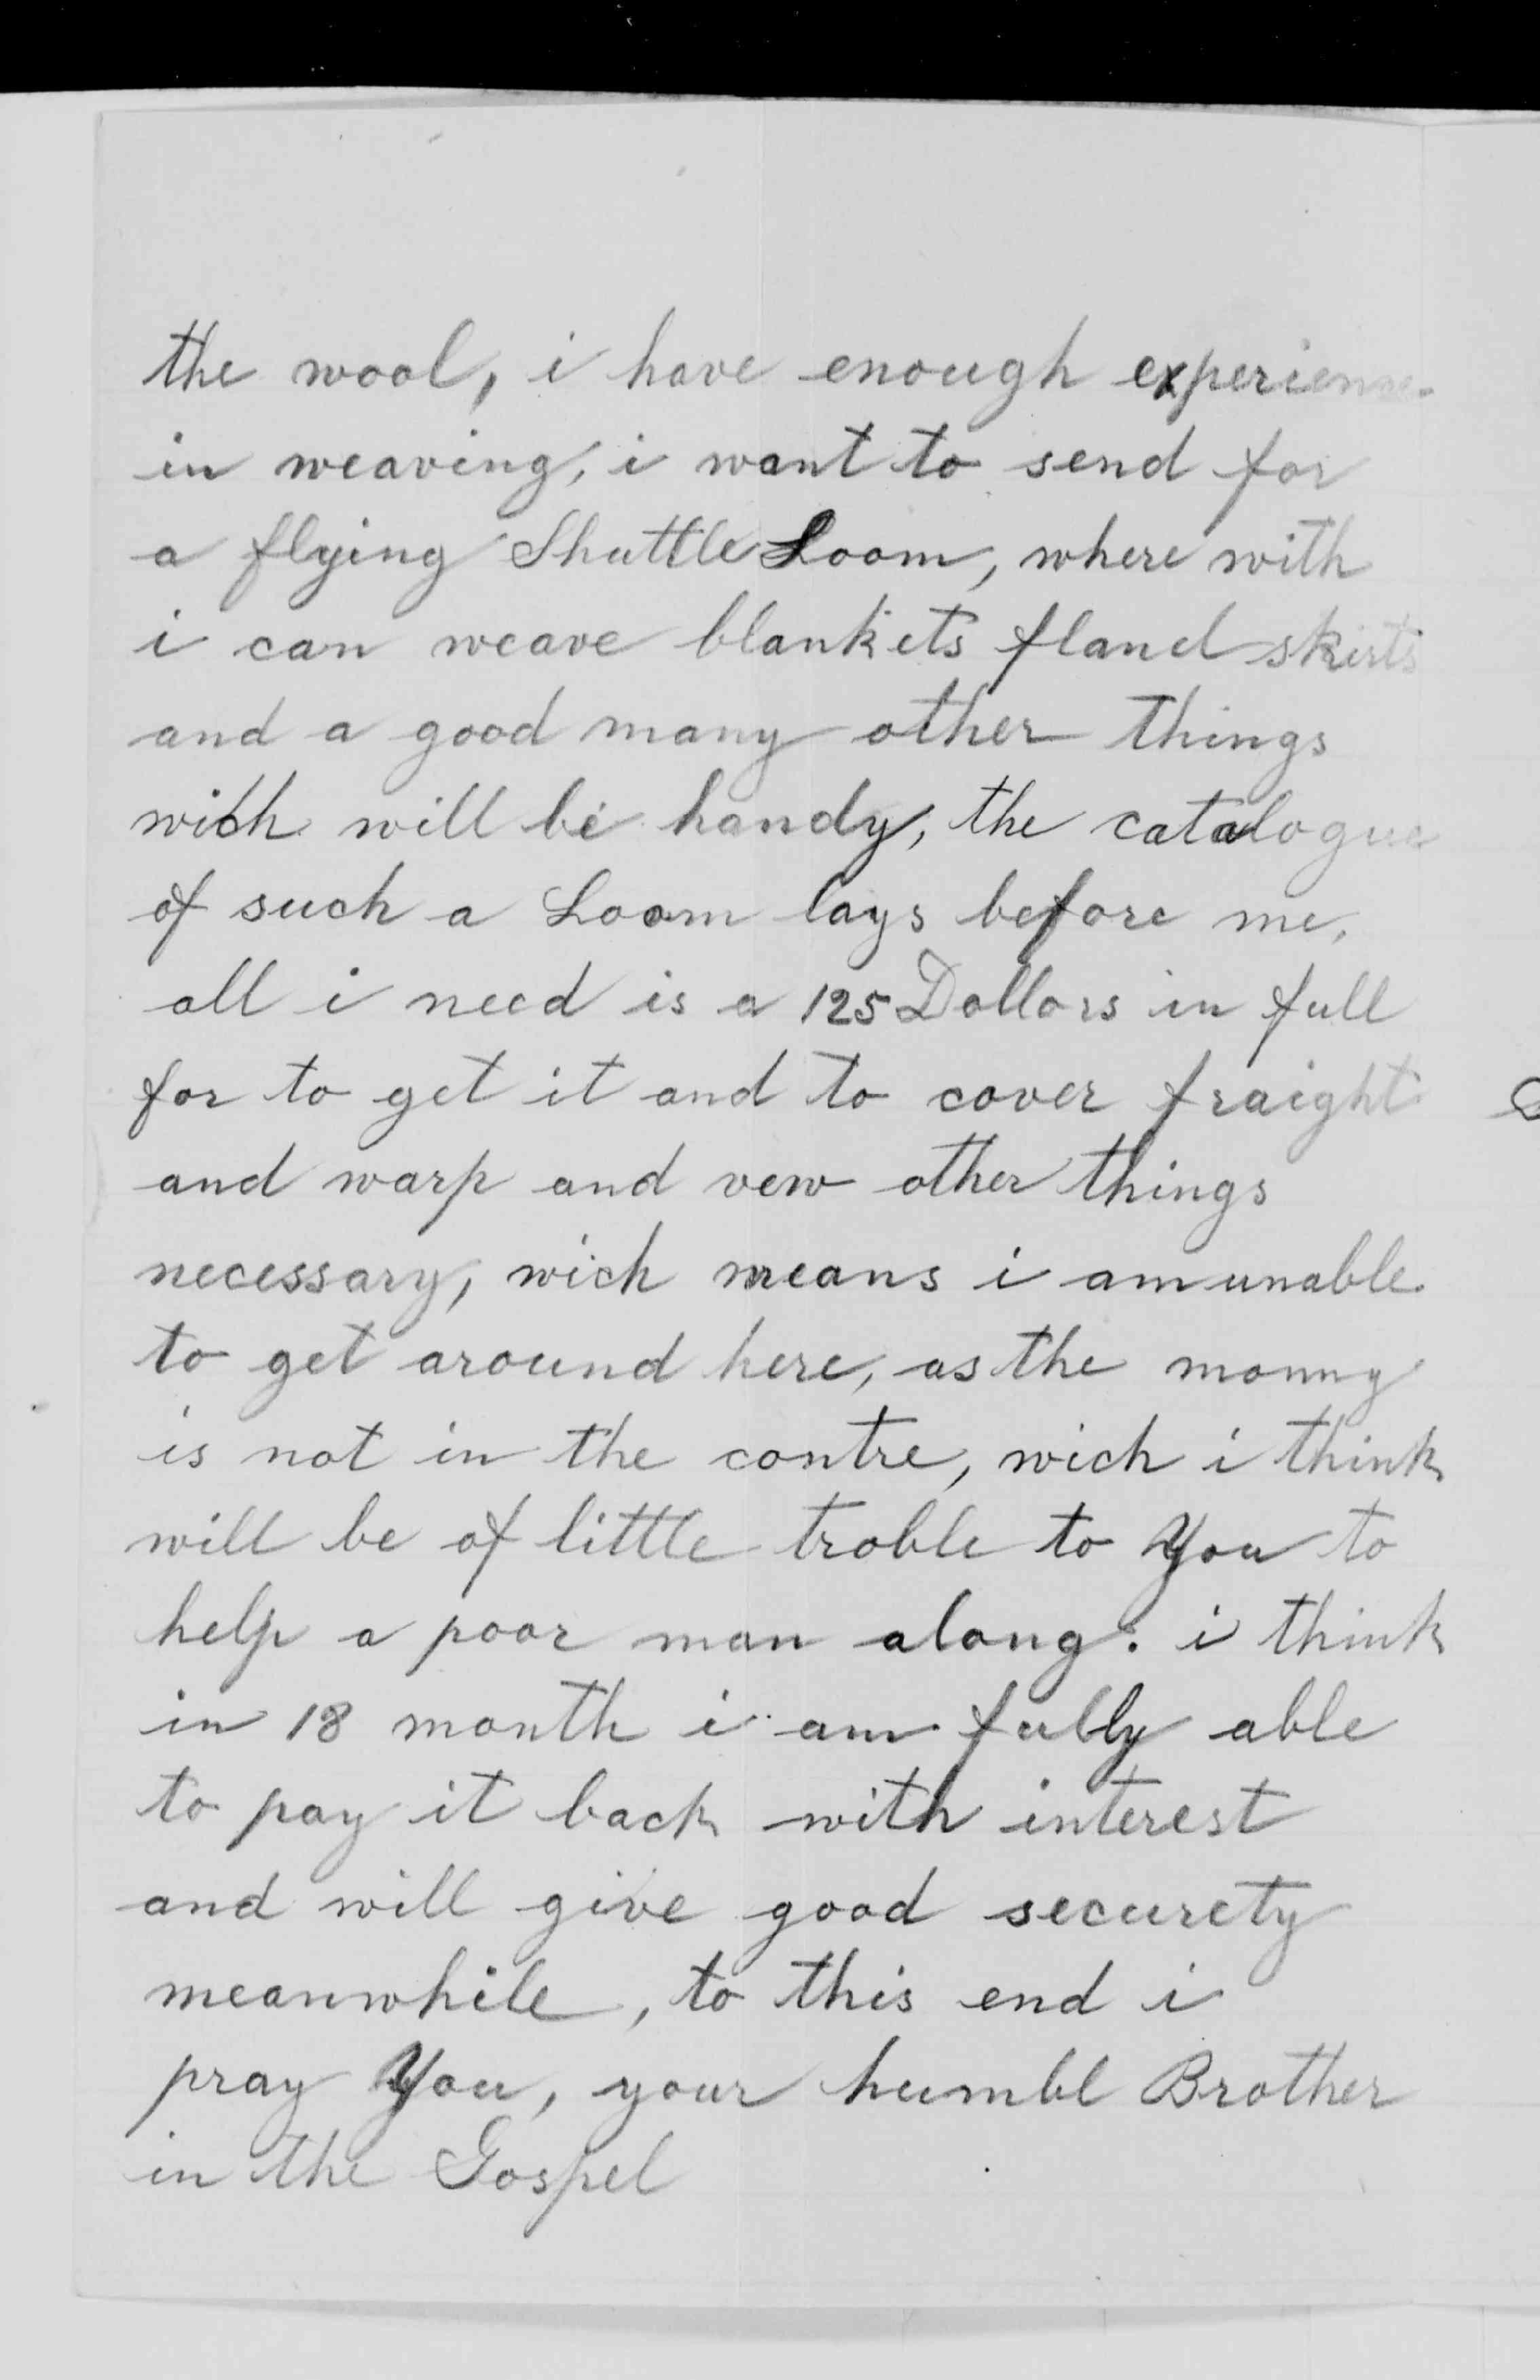 the wool, i have enough experience
in weaving, i want to send for
a flying Shuttle Loom, where with
i can weave blankets flanel skirts
and a good many other things
wich will be handy, the catalogue
of such a Loom lays before me,
all i need is a 125 Dollars in full
for to get it and to cover fraight
and warp and vew other things
necessary, wich means i am unable
to get around here, as the monny
is not in the contre, wich i think
will be of little troble to You to
help a poor man along: i think
in 18 month i am fully able
to pay it back with interest
and will give good securety
meanwhile, to this end i
pray You, your humbl Brother
in the Gospel